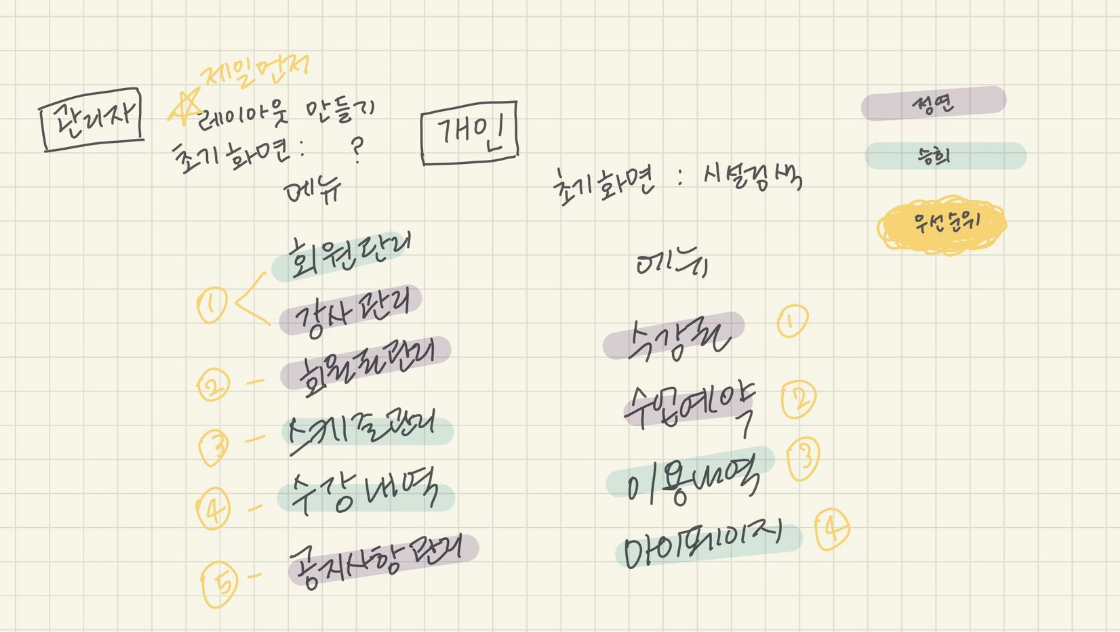 제일먼저
관리자
☆레이아웃 만들기
초기화면 : ?
메뉴
회원관리
① 강사관리
② - 회원권관리
③ - 스케줄관리
④ - 수강내역
⑤ - 공지사항관리
개인
초기화면 : 시설검색
메뉴
수강권 ①
수업예약 ②
이용내역 ③
마이페이지 ④
정연
승희
우선순위